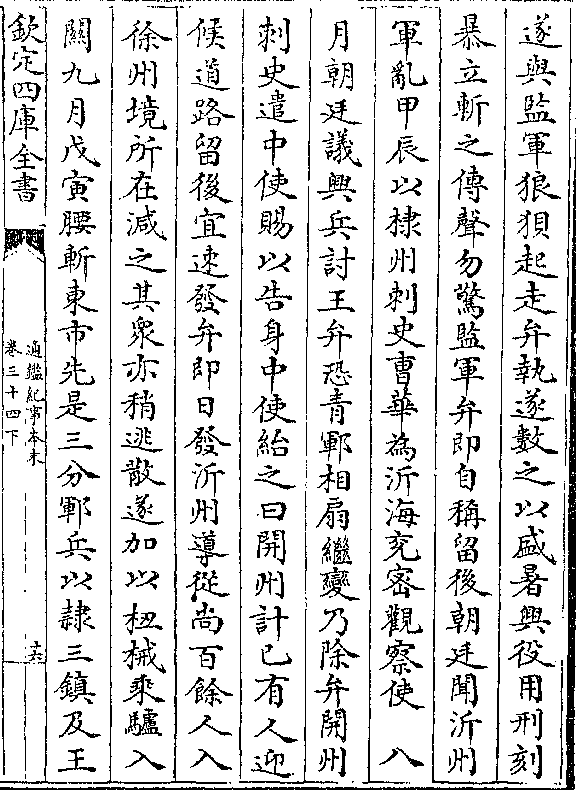 遂與監軍狼狽起走弁執遂數之以盛暑興役用刑刻
暴立斬之傳聲勿驚監軍弁即自稱留後朝廷聞沂州
軍亂甲辰以棣州刺史曹華為沂海兖宻觀察使　八
月朝廷議興兵討王弁恐青鄆相扇繼變乃除弁開州
刺史遣中使賜以告身中使紿之曰開州計已有人迎
候道路留後宜速發弁即日發沂州導從尚百餘人入
徐州境所在減之其衆亦稍逃散遂加以杻械乘驢入
關九月戊寅腰斬東市先是三分鄆兵以隷三鎮及王
欽定四庫全書
通鑑紀事本末
卷三十四下
十六